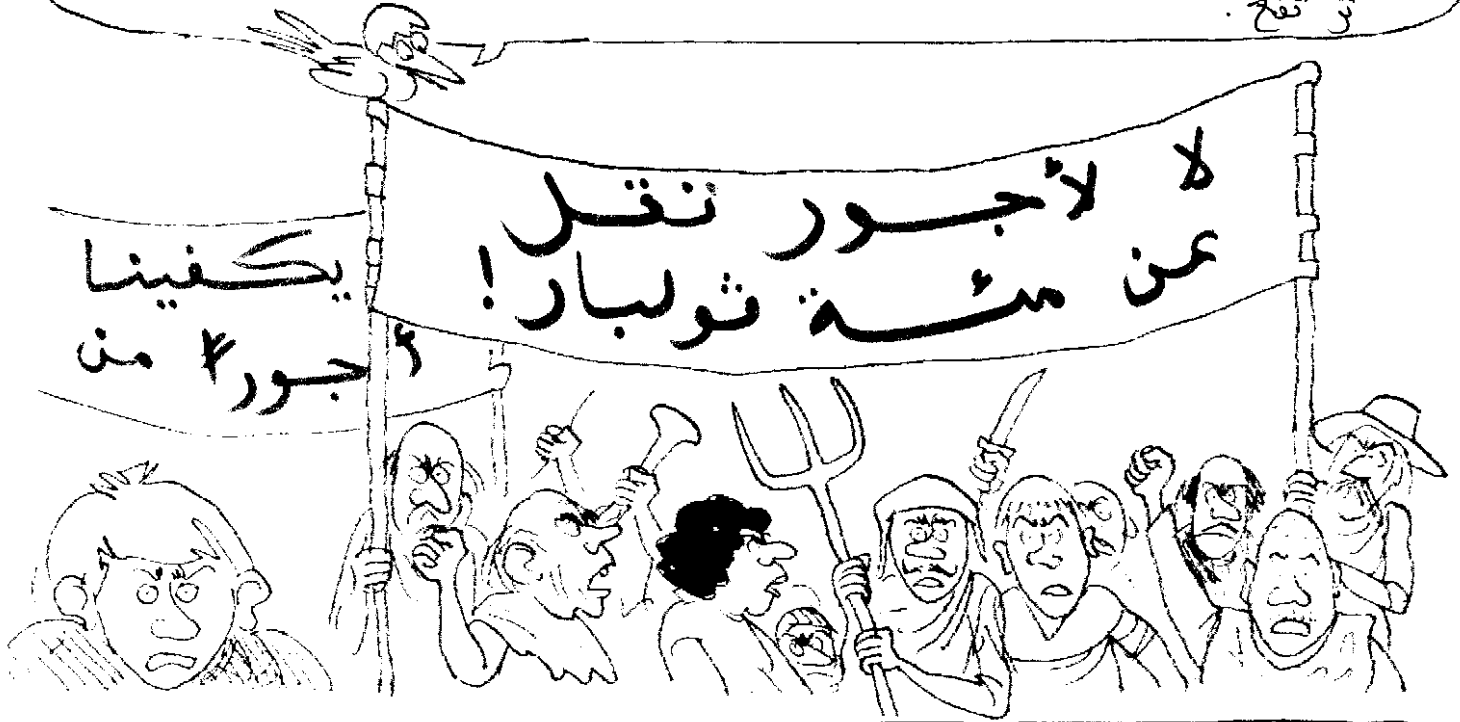 لا لأجور تقل
عن مئة ثولبار!
يكفينا
أجور٣ من